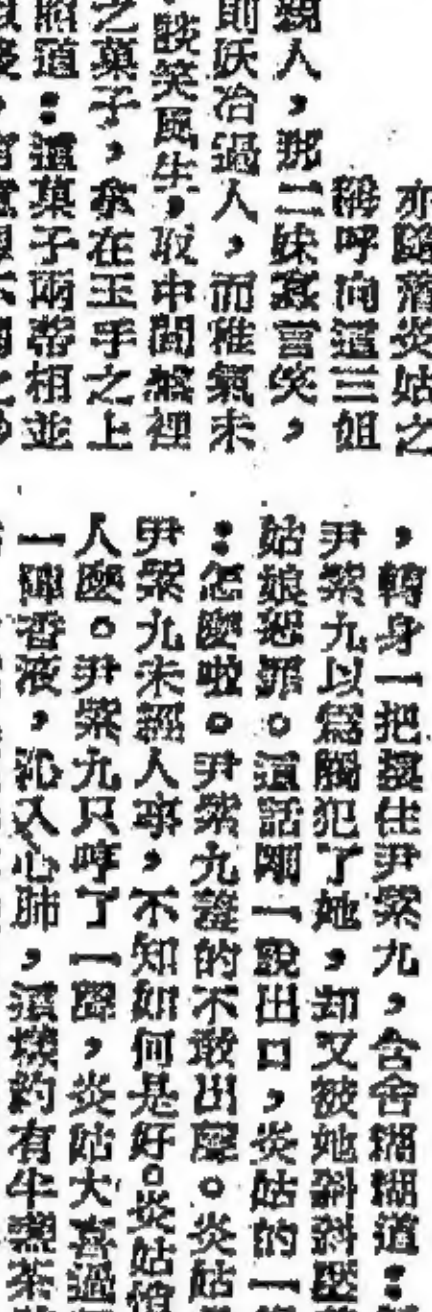 亦隨落炎姑之
稱呼向這三姐
親人，那二妹衾言笑，
則妖冶過人，而稚氣未
談笑風生，取中間盤裡
之菓子，拿在玉手之上
道：這菓子兩蒂相並
，轉身一把摟住尹紫九，含含糊糊道：
尹紫九以爲觸犯了她，却又被她斜斜
姑娘恕罪。這話剛一說出口，炎姑的一
：怎麼啦。尹紫九聾的不敢出聲。炎姑
尹紫九未經人事，不知如何是好。炎姑
人麼。尹紫九只哼了一聲，炎姑大喜過
一陣香液，沁入心肺，這樣約有半盞茶